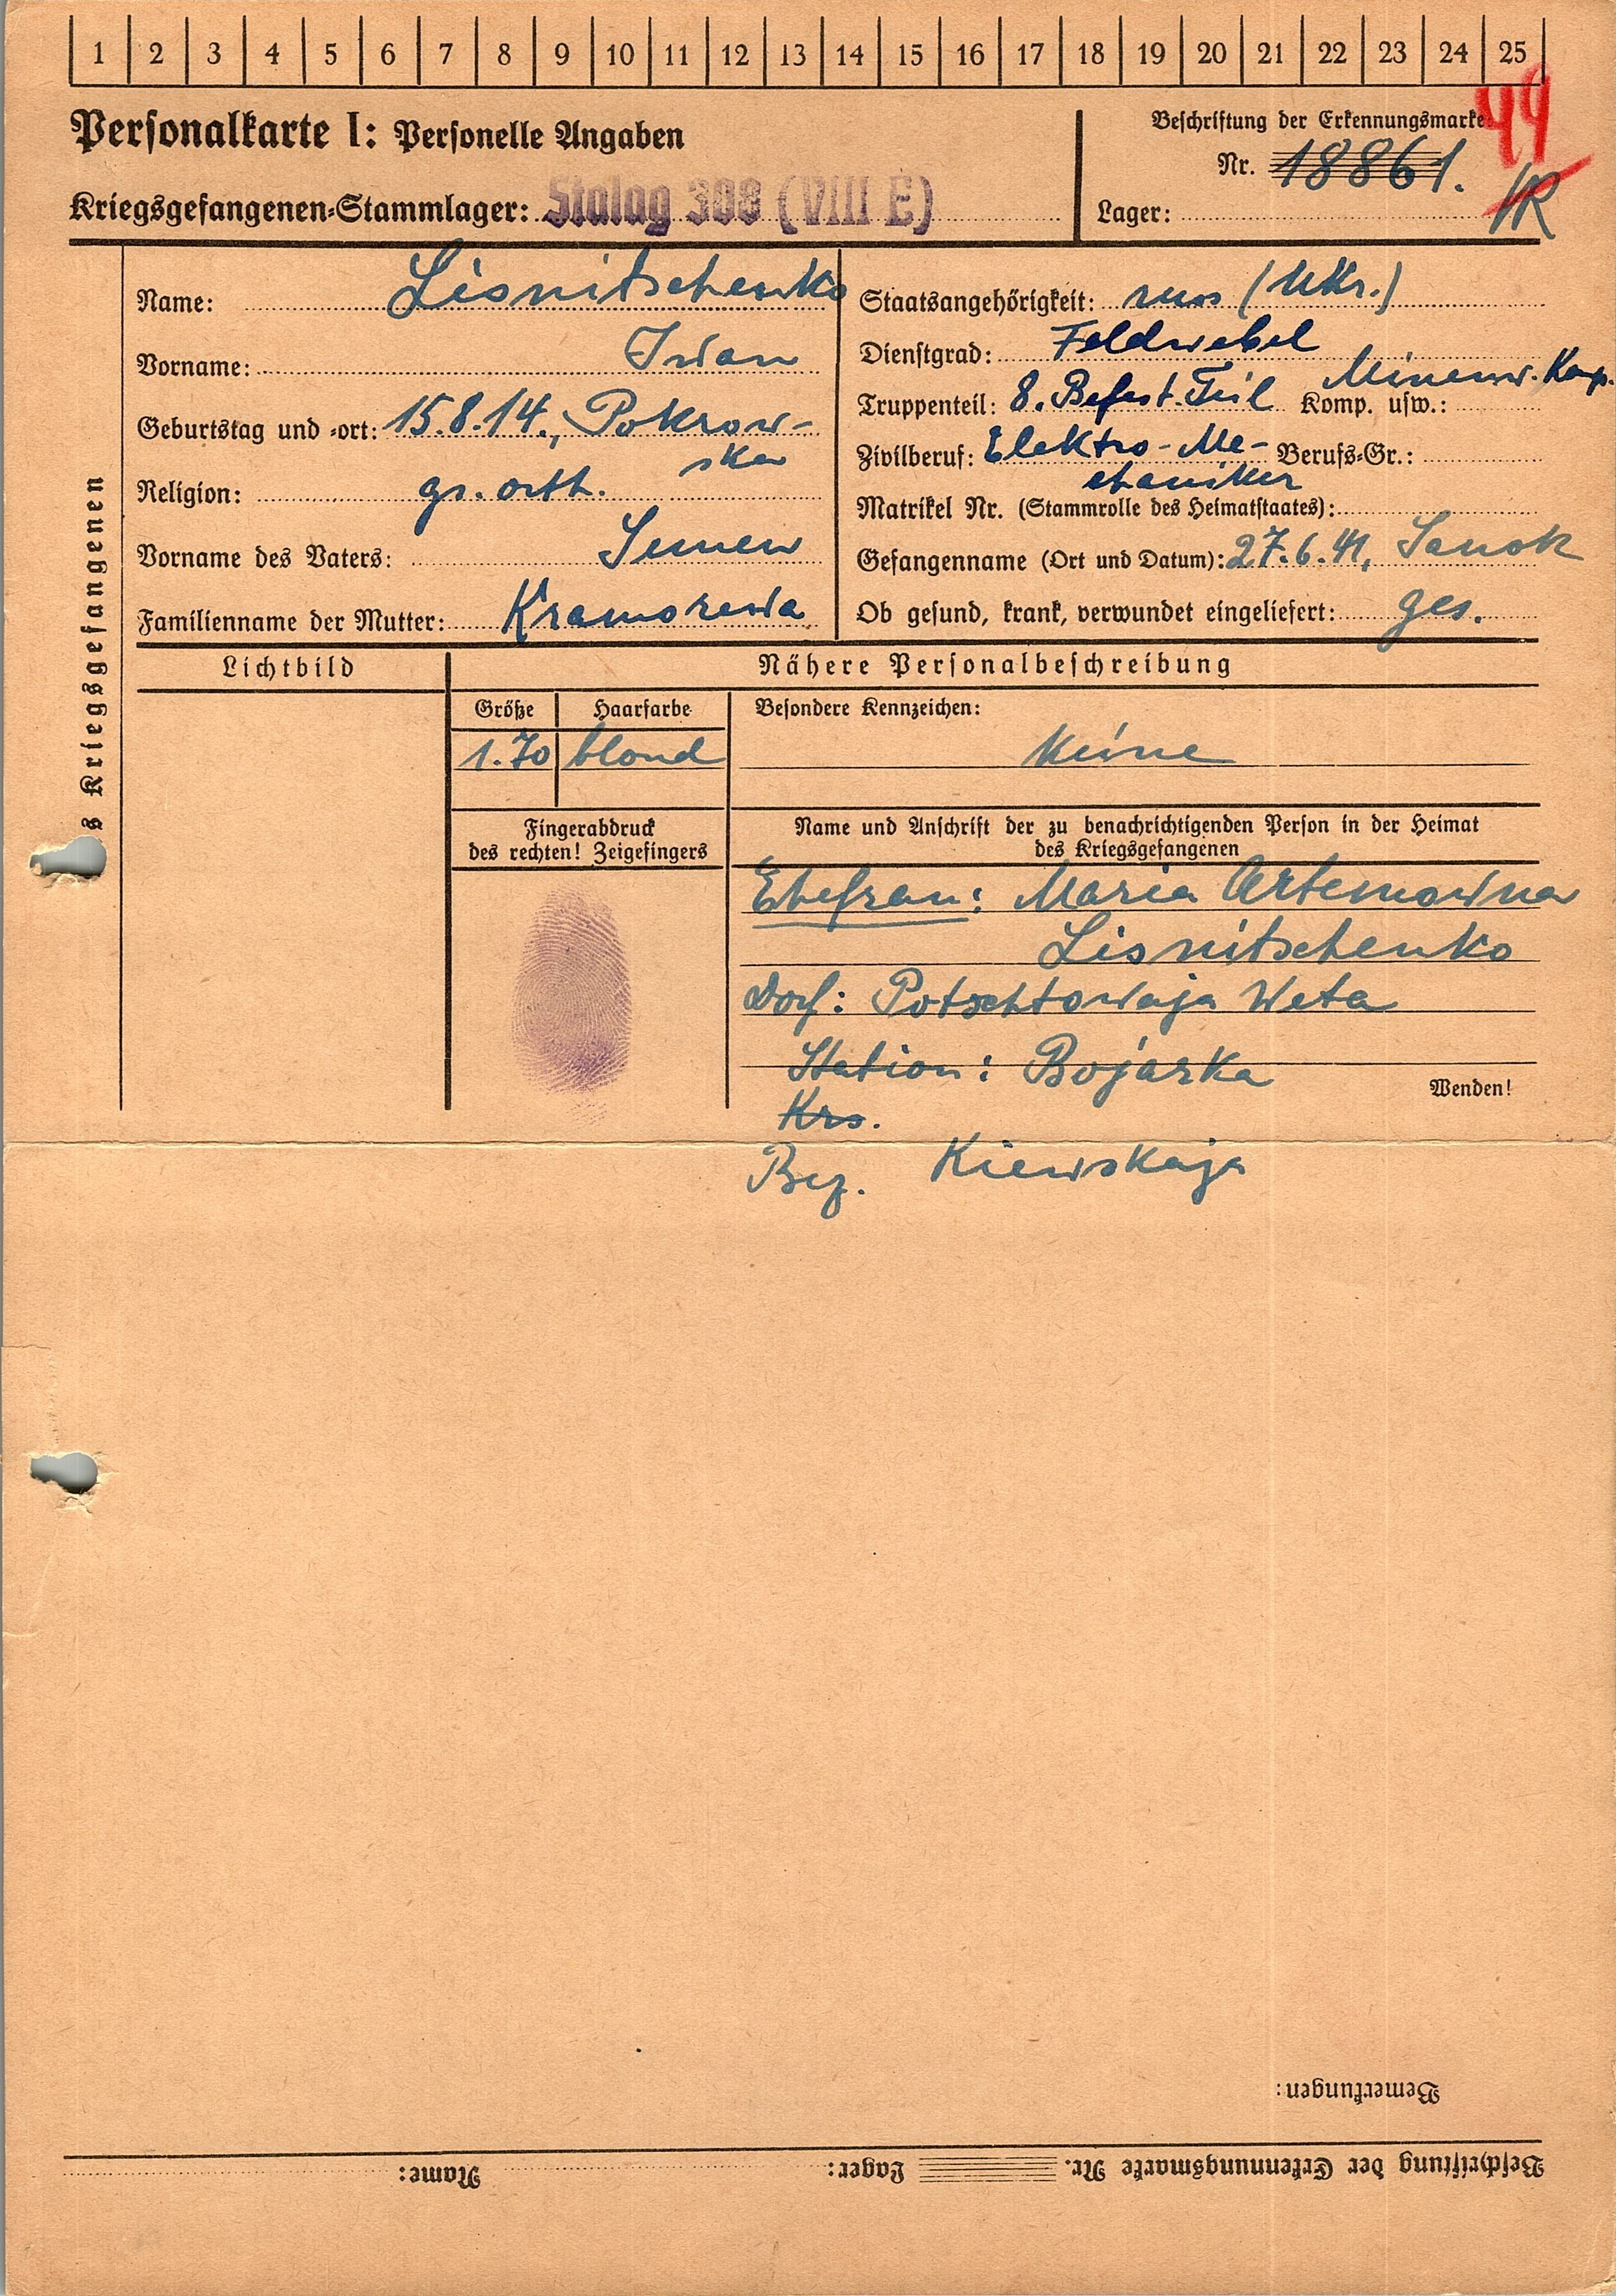 1 2 3 4 5 6 7 8 9 10 11 12 13 14 15 16 17 18 19 20 21 22 23 24 25
49
Personalkarte I: Personelle Angaben
Beschriftung der Erkennungsmarke
Nr. 18861.
VR
Kriegsgefangenen-Stammlager: Stalag 308 (VIII E)
Lager:
s Kriegsgefangenen
Name: Lisnitschenko
Vorname: Iwan
Geburtstag und -ort: 15.8.14., Pokrow-
skar
Religion: gr. orth.
Vorname des Vaters: Semen
Familienname der Mutter: Kramorewa
Staatsangehörigkeit: russ (Ukr.)
Dienstgrad: Feldwebel
Truppenteil: 8. Befest. Teil Komp. usw.: Minenw. Komp.
Zivilberuf: Elektro-Me- Berufs-Gr.:
chaniker
Matrikel Nr. (Stammrolle des Heimatstaates):
Gefangennahme (Ort und Datum): 27.6.41, Sanok
Ob gesund, krank, verwundet eingeliefert: ges.
Lichtbild
Nähere Personalbeschreibung
Größe Haarfarbe Besondere Kennzeichen:
1.70 blond keine
Fingerabdruck
des rechten! Zeigefingers
Name und Anschrift der zu benachrichtigenden Person in der Heimat
des Kriegsgefangenen
Ehefrau: Maria Artemowna
Lisnitschenko
Dorf: Potschtowaja Weta
Station: Bojarka
Wenden!
Krs.
Bez. Kiewskaja
Bemerkungen:
Beschriftung der Erkennungsmarke Nr. Lager: Name: